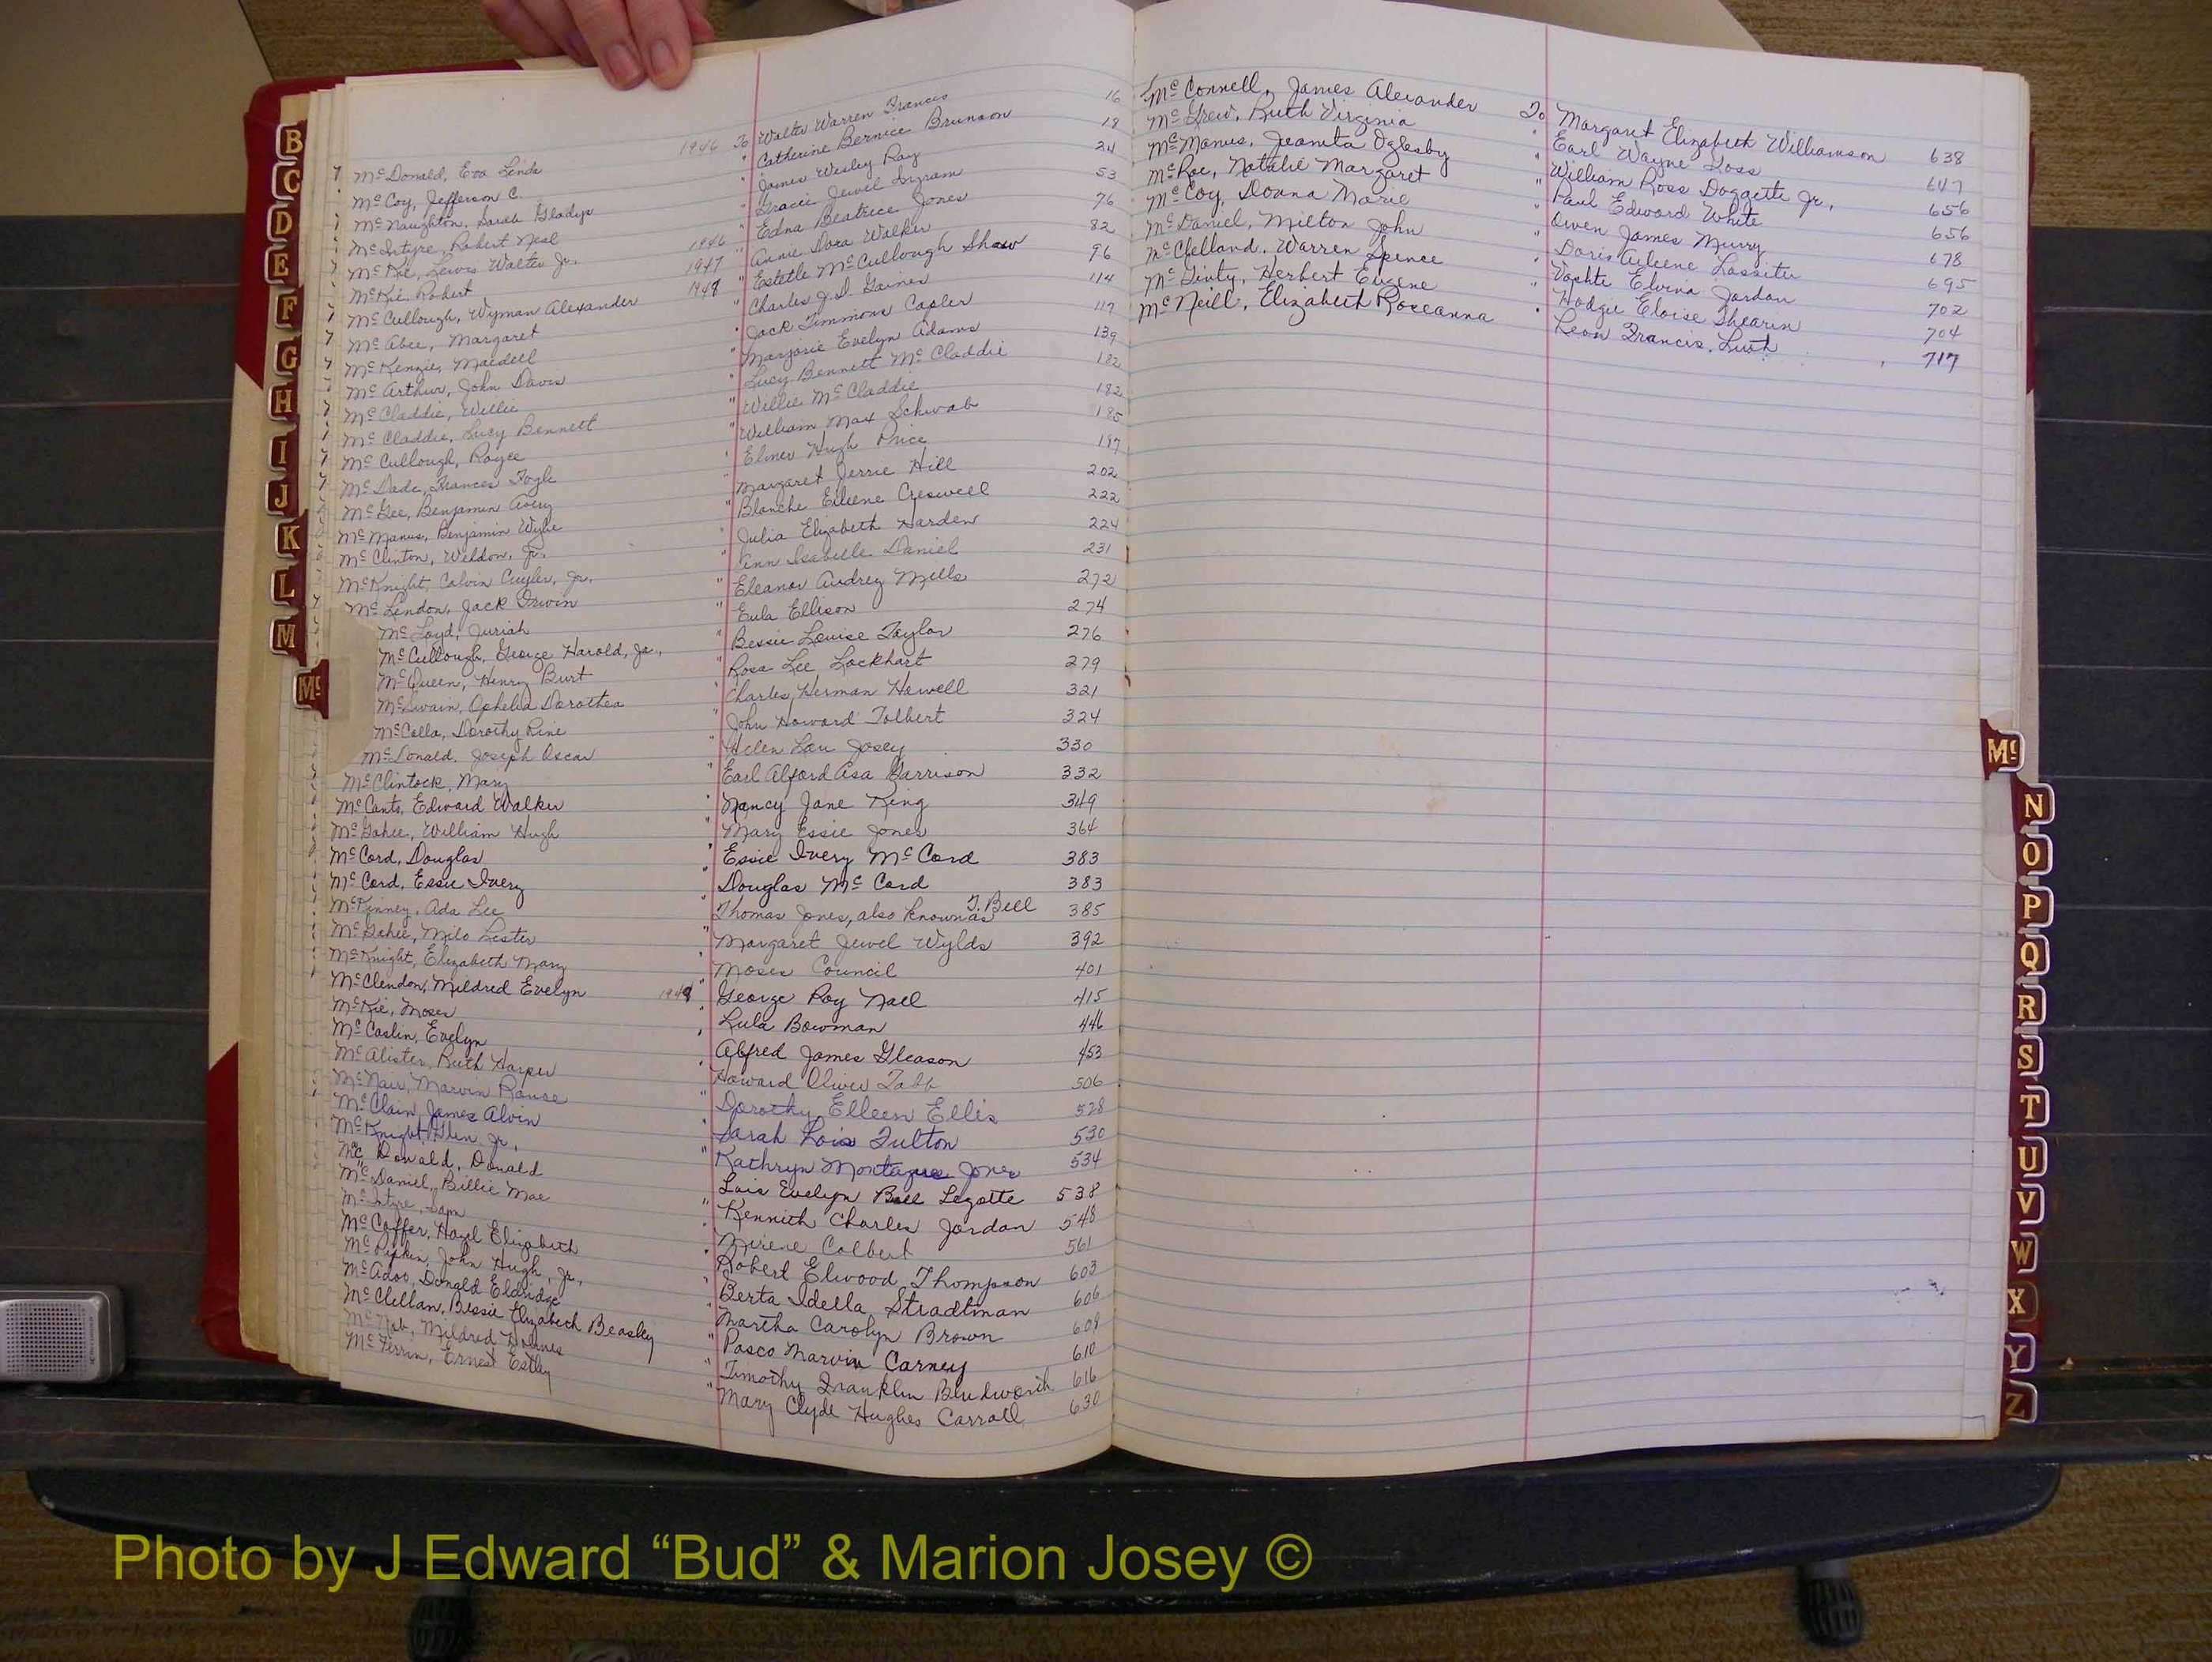 McDonald, Eva Linda 1946 To Walter Warren Francis 16
McCoy, Jefferson C. " Catherine Bernice Brunson 18
McNaughton, Sarah Gladys " James Wesley Ray 24
McIntyre, Robert Neal " Gracie Jewel Ingram 53
McKie, Lewis Walter Jr. 1946 " Edna Beatrice Jones 76
McKie, Robert 1947 " Annie Dora Walker 82
McCullough, Wyman Alexander 1948 " Estelle McCullough Shaw 96
McAbee, Margaret " Charles J.D. Gaines 114
McKenzie, Maedell " Jack Timmons Capler 117
McArthur, John Davis " Marjorie Evelyn Adams 139
McCladdie, Willie " Lucy Bennett McCladdie 182
McCladdie, Lucy Bennett " Willie McCladdie 182
McCullough, Royce " William Max Schwab 185
McDade, Frances Fogle " Elmer Hugh Price 197
McGee, Benjamin Avery " Margaret Jerrie Hill 202
McManus, Benjamin Wylie " Blanche Eileene Creswell 222
McClinton, Weldon, Jr. " Julia Elizabeth Harden 224
McKnight, Calvin Cuyler, Jr. " Ann Isabelle Daniel 231
McLendon, Jack Irwin " Eleanor Audrey Mills 272
McLoyd, Juriah " Eula Ellison 274
McCullough, George Harold, Jr., " Bessie Louise Taylor 276
McQueen, Henry Burt " Rosa Lee Lockhart 279
McSwain, Ophelia Dorothea " Charles Herman Howell 321
McColla, Dorothy Rine " John Howard Tolbert 324
McDonald, Joseph Oscar " Helen Lou Josey 330
McClintock, Mary " Earl Alford Asa Garrison 332
McCants, Edward Walker " Nancy Jane King 349
McGahee, William Hugh " Mary Essie Jones 364
McCord, Douglas " Essie Ivery McCord 383
McCord, Essie Ivery " Douglas McCord 383
McKinney, Ada Lee " Thomas Jones, also known as T. Bell 385
McGahee, Milo Lester " Margaret Jewel Wylds 392
McKnight, Elizabeth Mary " Moses Council 401
McClendon, Mildred Evelyn 1949 " George Roy Nall 415
McKie, Moses " Lula Bowman 446
McCaslin, Evelyn " Alfred James Gleason 453
McAlister, Ruth Harper " Howard Oliver Tabb 506
McNair, Marvin Rouse " Dorothy Elleen Ellis 528
McClain, James Alvin " Sarah Lois Fulton 530
McKnight, Glen Jr., " Kathryn Montague Jones 534
McDonald, Donald " Lois Evelyn Bell Legette 538
McDaniel, Billie Mae " Kennith Charles Jordan 548
McIntyre, Sam " Mirene Colbert 561
McCoffer, Hazel Elizabeth " Robert Elwood Thompson 603
McPipkin, John Hugh, Jr., " Berta Idella Stradtman 606
McAdoo, Donald Eldridge " Martha Carolyn Brown 608
McClellan, Bessie Elizabeth Beasley " Pasco Marvin Carney 610
McNab, Mildred " Timothy Franklin Bludworth 616
McFerrin, Ernest Estley " Mary Clyde Hughes Carroll 630
McConnell, James Alexander To Margaret Elizabeth Williamson 638
McGrew, Ruth Virginia " Earl Wayne Loss 647
McManus, Jeanita Oglesby " William Ross Doggette Jr., 656
McRae, Natalie Margaret " Paul Edward White 656
McCoy, Donna Marie " Owen James Murry 678
McDaniel, Milton John " Doris Arleene Lassiter 695
McClelland, Warren Spence " Vashte Elvina Jordan 702
McGinty, Herbert Eugene " Hodgie Eloise Thearin 704
McNeill, Elizabeth Roseanna " Leon Francis 717
B
C
D
E
F
G
H
I
J
K
L
M
Mc
Mc
N
O
P
Q
R
S
T
U
V
W
X
Y
Z
Photo by J Edward “Bud” & Marion Josey ©